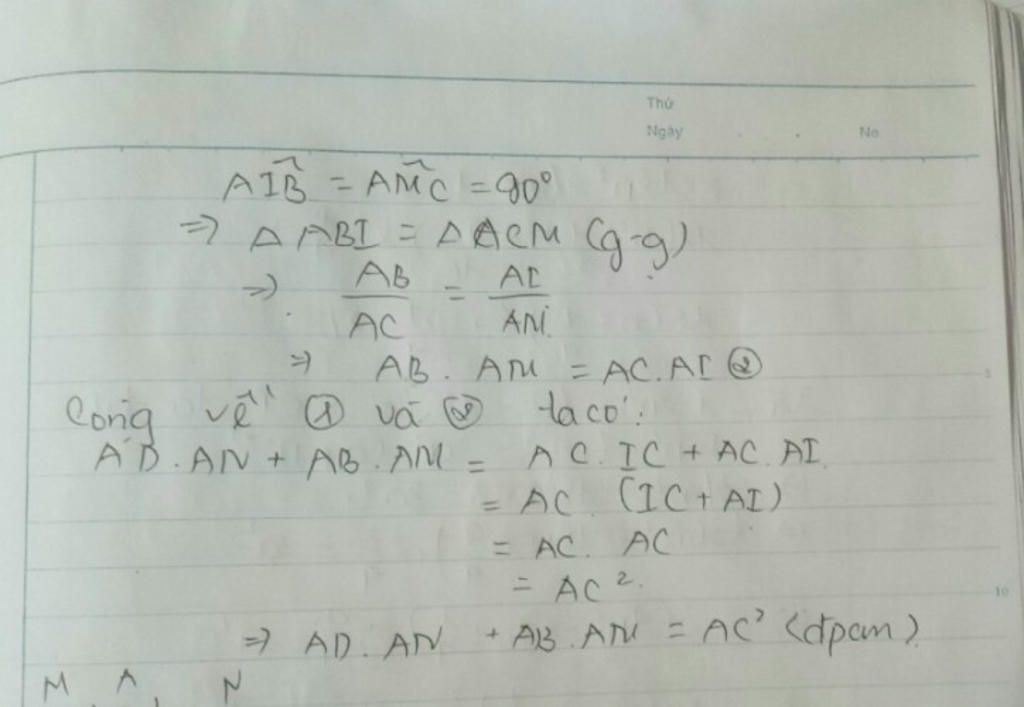 Thứ
Ngày . . No
AIB̂ = AM̂C = 90°
=> Δ ABI = Δ ACM (g-g)
=> AB/AC = AI/AM
=> AB . AM = AC.AI ②
Cộng vế ① và ② ta có:
AD.AN + AB.AM = AC.IC + AC.AI
= AC. (IC + AI)
= AC. AC
= AC².
5
10
=> AD.AN + AB.AM = AC² (đpcm)
M A N